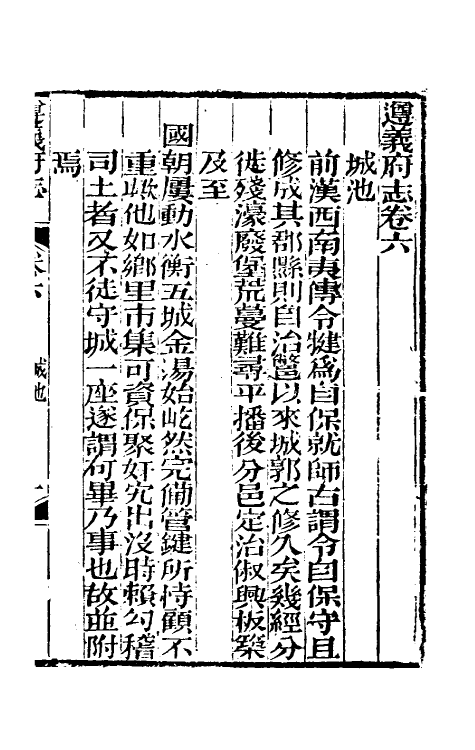 遵義府志卷六
城池
前漢西南夷傳令犍爲自保就師古謂令自保守且
修成其郡縣則自治鄨以來城郭之修久矣幾經分
徙殘濠廢堡荒蔓難尋平播後分邑定治俶興板築
及至
國朝屢動水衡五城金湯始屹然完備管鍵所恃顧不
重歟他如鄉里市集可資保聚奸宄出沒時賴勾稽
司土者又不徒守城一座遂謂可畢乃事也故並附
焉
遵義府志
卷六
城池
一